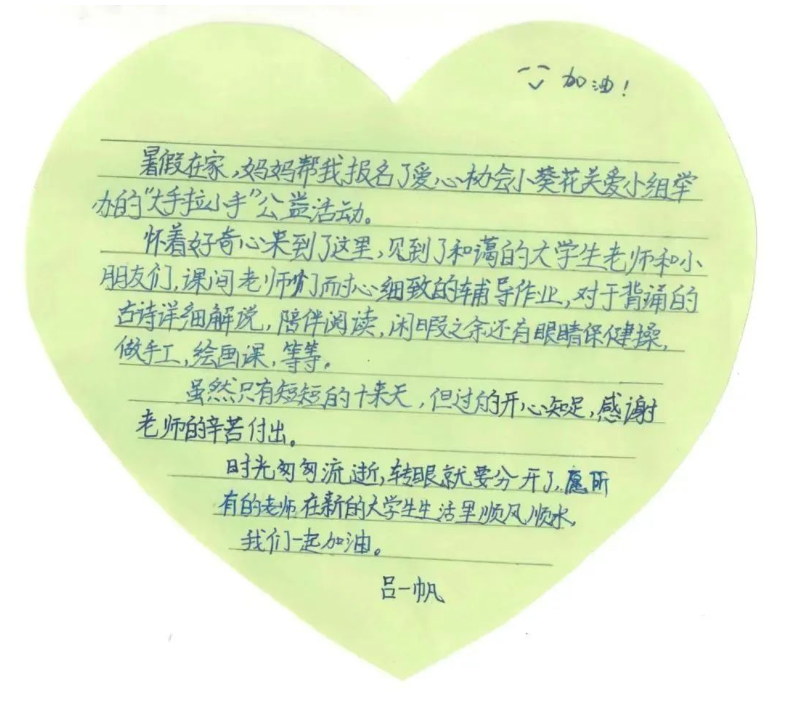 加油！
暑假在家，妈妈帮我报名了爱心协会小葵花关爱小组举
办的“大手拉小手”公益活动。
怀着好奇心来到了这里，见到了和蔼的大学生老师和小
朋友们，课间老师们耐心细致的辅导作业，对于背诵的
古诗详细解说，陪伴阅读，闲暇之余还有眼睛保健操，
做手工，绘画课，等等。
虽然只有短短的十来天，但过的开心知足，感谢
老师的辛苦付出。
时光匆匆流逝，转眼就要分开了，愿所
有的老师在新的大学生生活里顺风顺水，
我们一起加油。
吕一帆